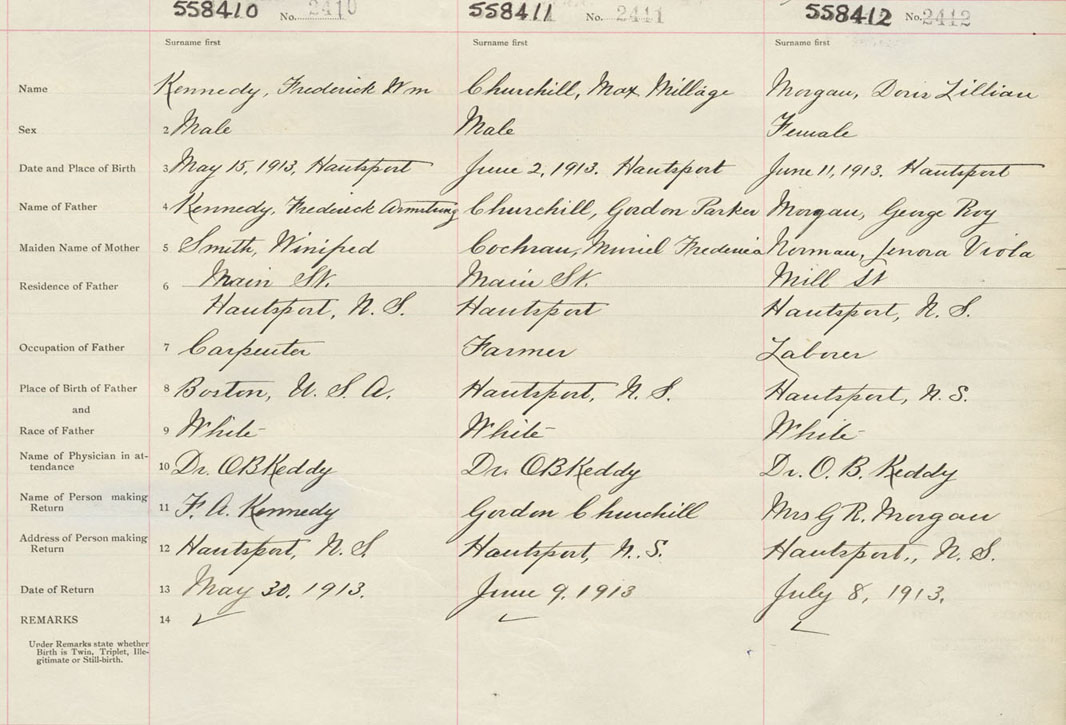 558410 No. 2410 558411 No. 2411 558412 No. 2412
Surname first Surname first Surname first
Name Kennedy, Frederick Wm Churchill, Max Millage Morgan, Doris Lillian
Sex 2 Male Male Female
Date and Place of Birth 3 May 15, 1913, Hantsport June 2, 1913. Hantsport June 11, 1913. Hantsport
Name of Father 4 Kennedy, Frederick Armstrong Churchill, Gordon Parker Morgan, George Roy
Maiden Name of Mother 5 Smith, Winifred Cochran, Muriel Frederica Norman, Lenora Viola
Residence of Father 6 Main St. Main St. Mill St
Hantsport, N. S. Hantsport Hantsport, N. S.
Occupation of Father 7 Carpenter Farmer Laborer
Place of Birth of Father 8 Boston, U. S. A. Hantsport, N. S. Hantsport, N. S.
and
Race of Father 9 White White White
Name of Physician in at-
tendance 10 Dr. O B Keddy Dr. O B Keddy Dr. O. B. Keddy
Name of Person making
Return 11 F. A. Kennedy Gordon Churchill Mrs G R. Morgan
Address of Person making
Return 12 Hantsport, N. S. Hantsport, N. S. Hantsport., N. S.
Date of Return 13 May 30. 1913. June 9. 1913 July 8, 1913.
REMARKS 14 ✓ ✓ ✓
Under Remarks state whether
Birth is Twin, Triplet, Ille-
gitimate or Still-birth.